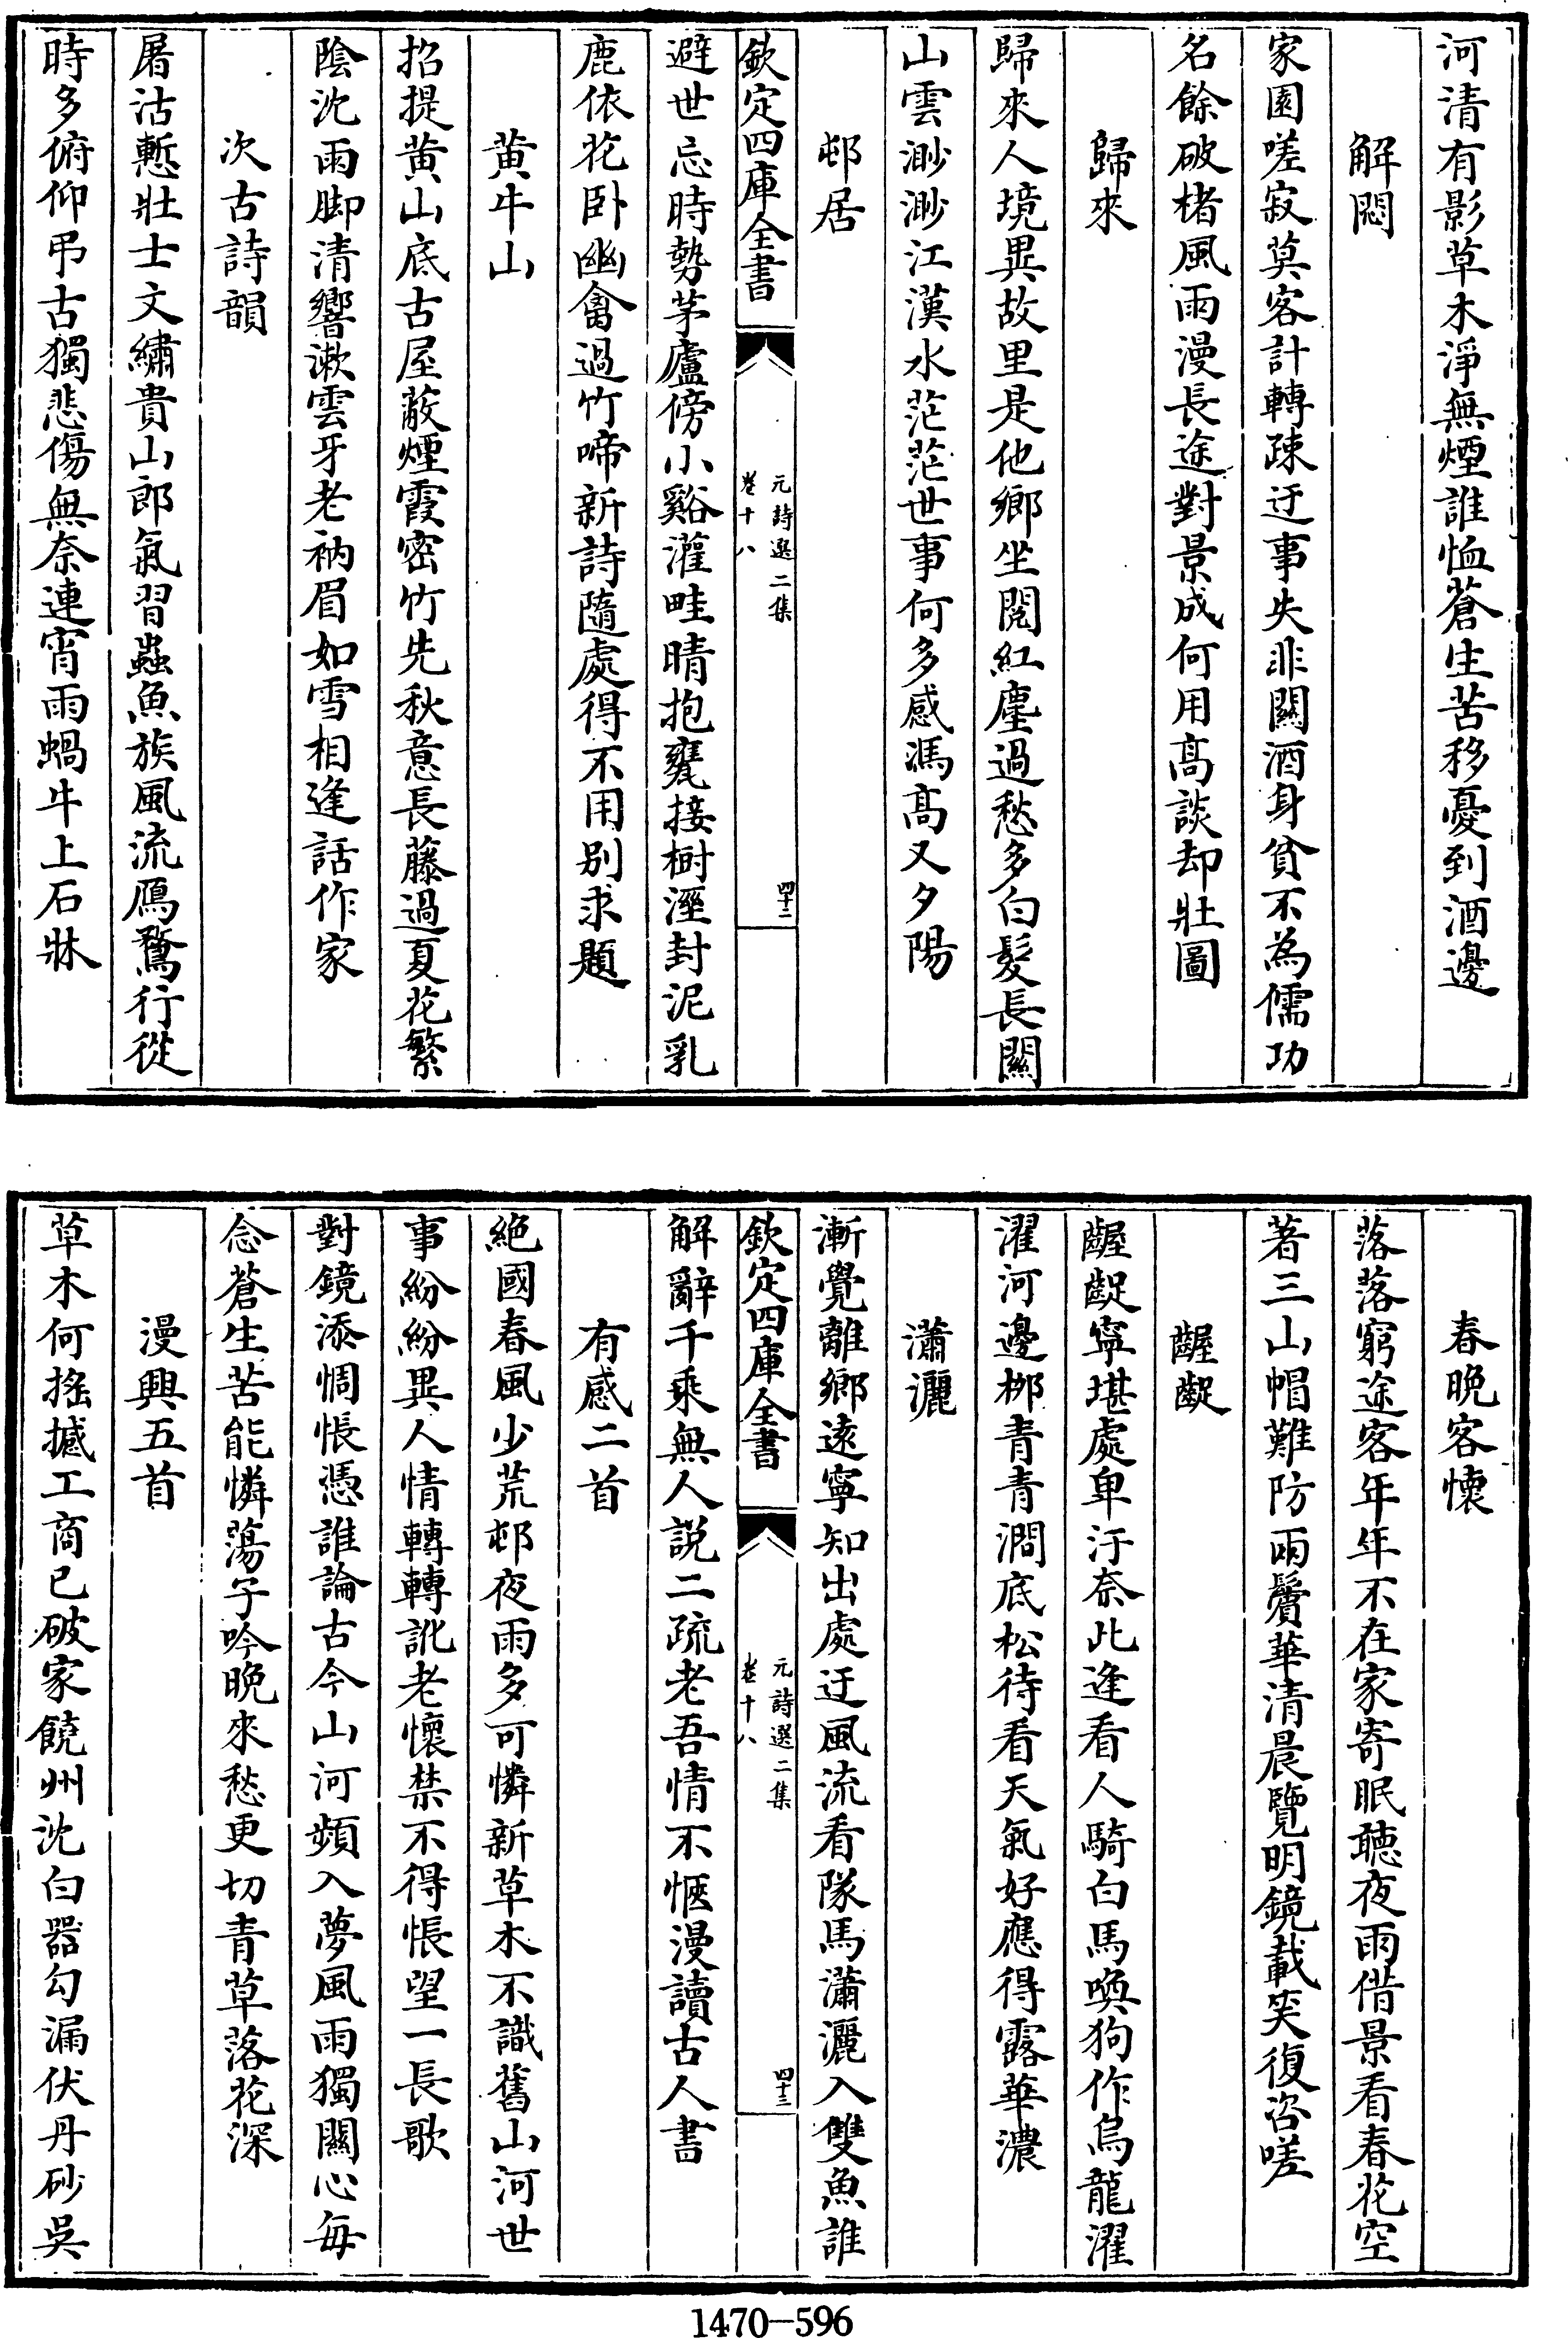 河清有影草木淨無煙誰恤蒼生苦移憂到酒邊
解悶
家園嗟寂莫客計轉疎迂事失非關酒身貧不為儒功
名餘破楮風雨漫長途對景成何用高談却壯圖
歸來
歸來人境異故里是他鄉坐閱紅塵過愁多白髮長關
山雲渺渺江漢水茫茫世事何多感馮高又夕陽
邨居
欽定四庫全書
元詩選二集
卷十八
四十二
避世忘時勢茅廬傍小谿灌畦晴抱甕接樹溼封泥乳
鹿依花卧幽禽過竹啼新詩隨處得不用别求題
黄牛山
招提黄山底古屋蔽煙霞密竹先秋意長藤過夏花繁
陰沈雨脚清響漱雲牙老衲眉如雪相逢話作家
次古詩韻
屠沽慙壯士文繡貴山郎氣習蟲魚族風流鴈鶩行從
時多俯仰弔古獨悲傷無奈連宵雨蝸牛上石牀
春晚客懷
落落窮途客年年不在家寄眠聽夜雨借景看春花空
著三山帽難防兩鬢華清晨覽明鏡載笑復咨嗟
齷齪
齷齪寧堪處卑汙奈此逢看人騎白馬喚狗作烏龍濯
濯河邊栁青青澗底松待看天氣好應得露華濃
瀟灑
漸覺離鄉遠寧知出處迂風流看隊馬瀟灑入雙魚誰
欽定四庫全書
元詩選二集
卷十八
四十三
解辭千乘無人説二疏老吾情不愜漫讀古人書
有感二首
絶國春風少荒邨夜雨多可憐新草木不識舊山河世
事紛紛異人情轉轉訛老懷禁不得悵望一長歌
對鏡添惆悵憑誰論古今山河頻入夢風雨獨關心每
念蒼生苦能憐蕩子吟晚來愁更切青草落花深
漫興五首
草木何搖撼工商已破家饒州沈白器勾漏伏丹砂吳
1470-596